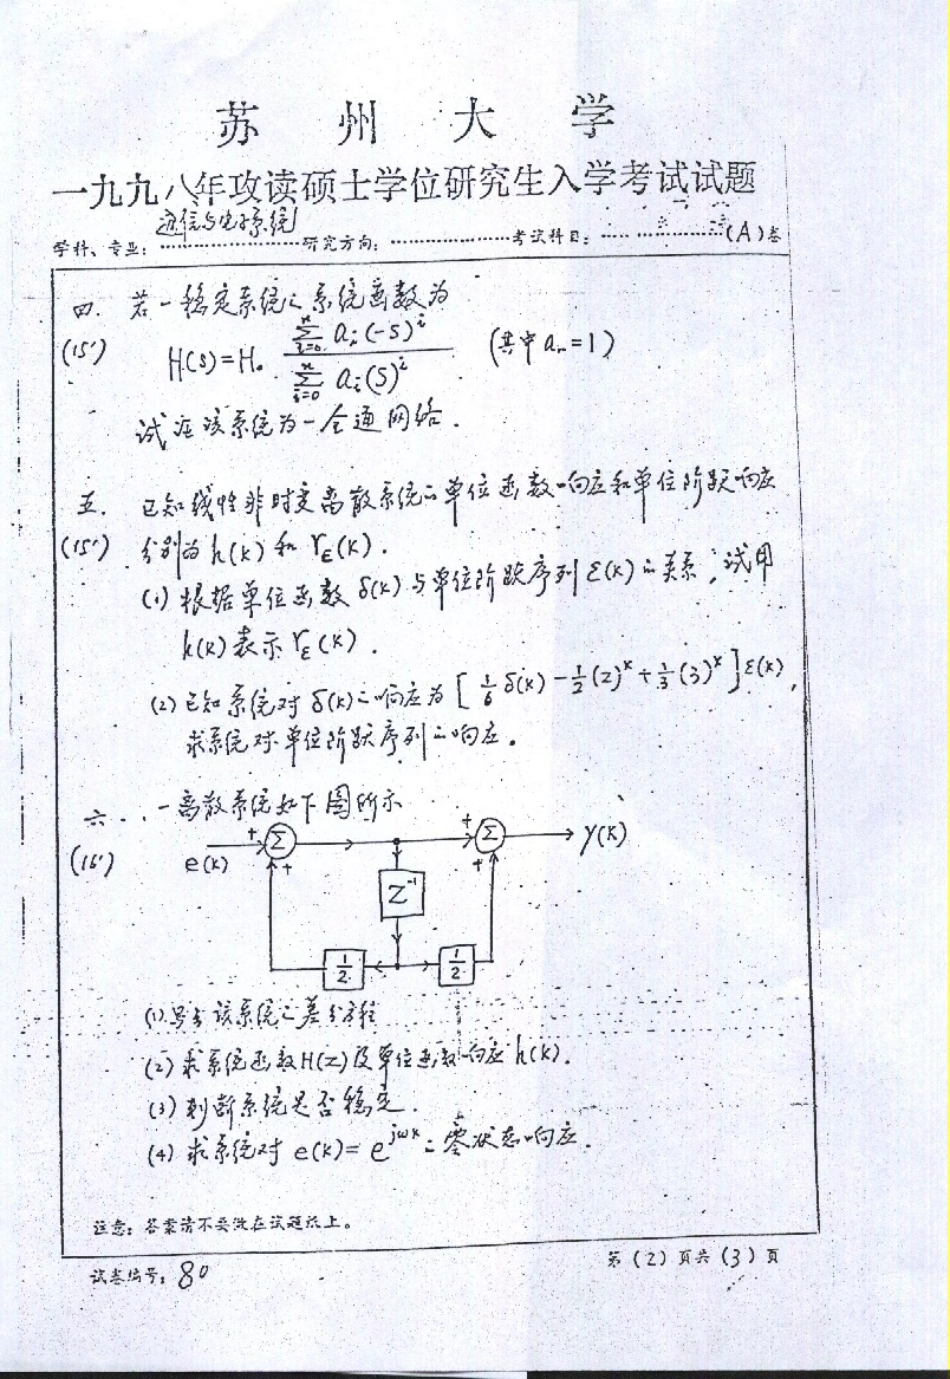 苏 州 大 学
一九九八年攻读硕士学位研究生入学考试试题
学科、专业：通信与电子系统 研究方向： 考试科目： (A)卷
四. 若一稳定系统之系统函数为
(15') H(s)=H₀ \frac{\sum_{i=0}^{n} a_i(-s)^i}{\sum_{i=0}^{n} a_i(s)^i} (其中 aₙ=1)
试证该系统为一全通网络.
五. 已知线性非时变离散系统的单位函数响应和单位阶跃响应
(15') 分别为 h(k) 和 r_ε(k).
(1) 根据单位函数 δ(k) 与单位阶跃序列 ε(k) 的关系, 试用
h(k) 表示 r_ε(k).
(2) 已知系统对 δ(k) 之响应为 [1/6 δ(k) - 1/2 (2)^k + 1/3 (3)^k] ε(k),
求系统对单位阶跃序列的响应.
六. 一离散系统如下图所示
(16')
+ Σ + Σ y(k)
e(k) + +
Z⁻¹
1/2 1/2
(1) 写出该系统之差分方程
(2) 求系统函数 H(z) 及单位函数响应 h(k).
(3) 判断系统是否稳定.
(4) 求系统对 e(k)= e^{jωk} 之零状态响应.
注意：答案请不要做在试题纸上。
第(2)页共(3)页
试卷编号：80